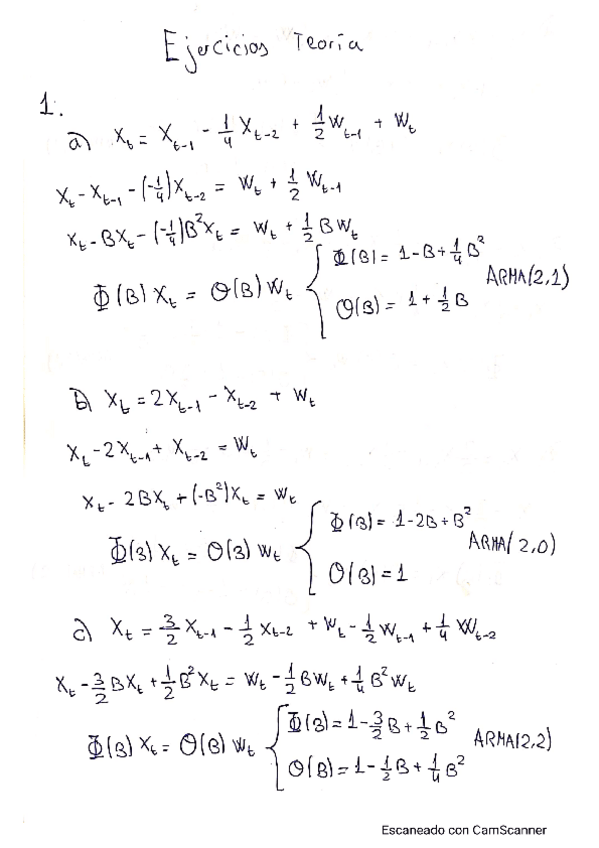 Ejercicios Teoría
1.
a) X_t = X_{t-1} - 1/4 X_{t-2} + 1/2 W_{t-1} + W_t
X_t - X_{t-1} - (-1/4) X_{t-2} = W_t + 1/2 W_{t-1}
X_t - BX_t - (-1/4) B² X_t = W_t + 1/2 B W_t
Φ(B) X_t = Θ(B) W_t { Φ(B) = 1 - B + 1/4 B²
Θ(B) = 1 + 1/2 B
ARMA(2,1)
b) X_t = 2X_{t-1} - X_{t-2} + W_t
X_t - 2X_{t-1} + X_{t-2} = W_t
X_t - 2BX_t + (-B²) X_t = W_t
Φ(B) X_t = Θ(B) W_t { Φ(B) = 1 - 2B + B²
Θ(B) = 1
ARMA(2,0)
c) X_t = 3/2 X_{t-1} - 1/2 X_{t-2} + W_t - 1/2 W_{t-1} + 1/4 W_{t-2}
X_t - 3/2 BX_t + 1/2 B² X_t = W_t - 1/2 BW_t + 1/4 B² W_t
Φ(B) X_t = Θ(B) W_t { Φ(B) = 1 - 3/2 B + 1/2 B²
Θ(B) = 1 - 1/2 B + 1/4 B²
ARMA(2,2)
Escaneado con CamScanner